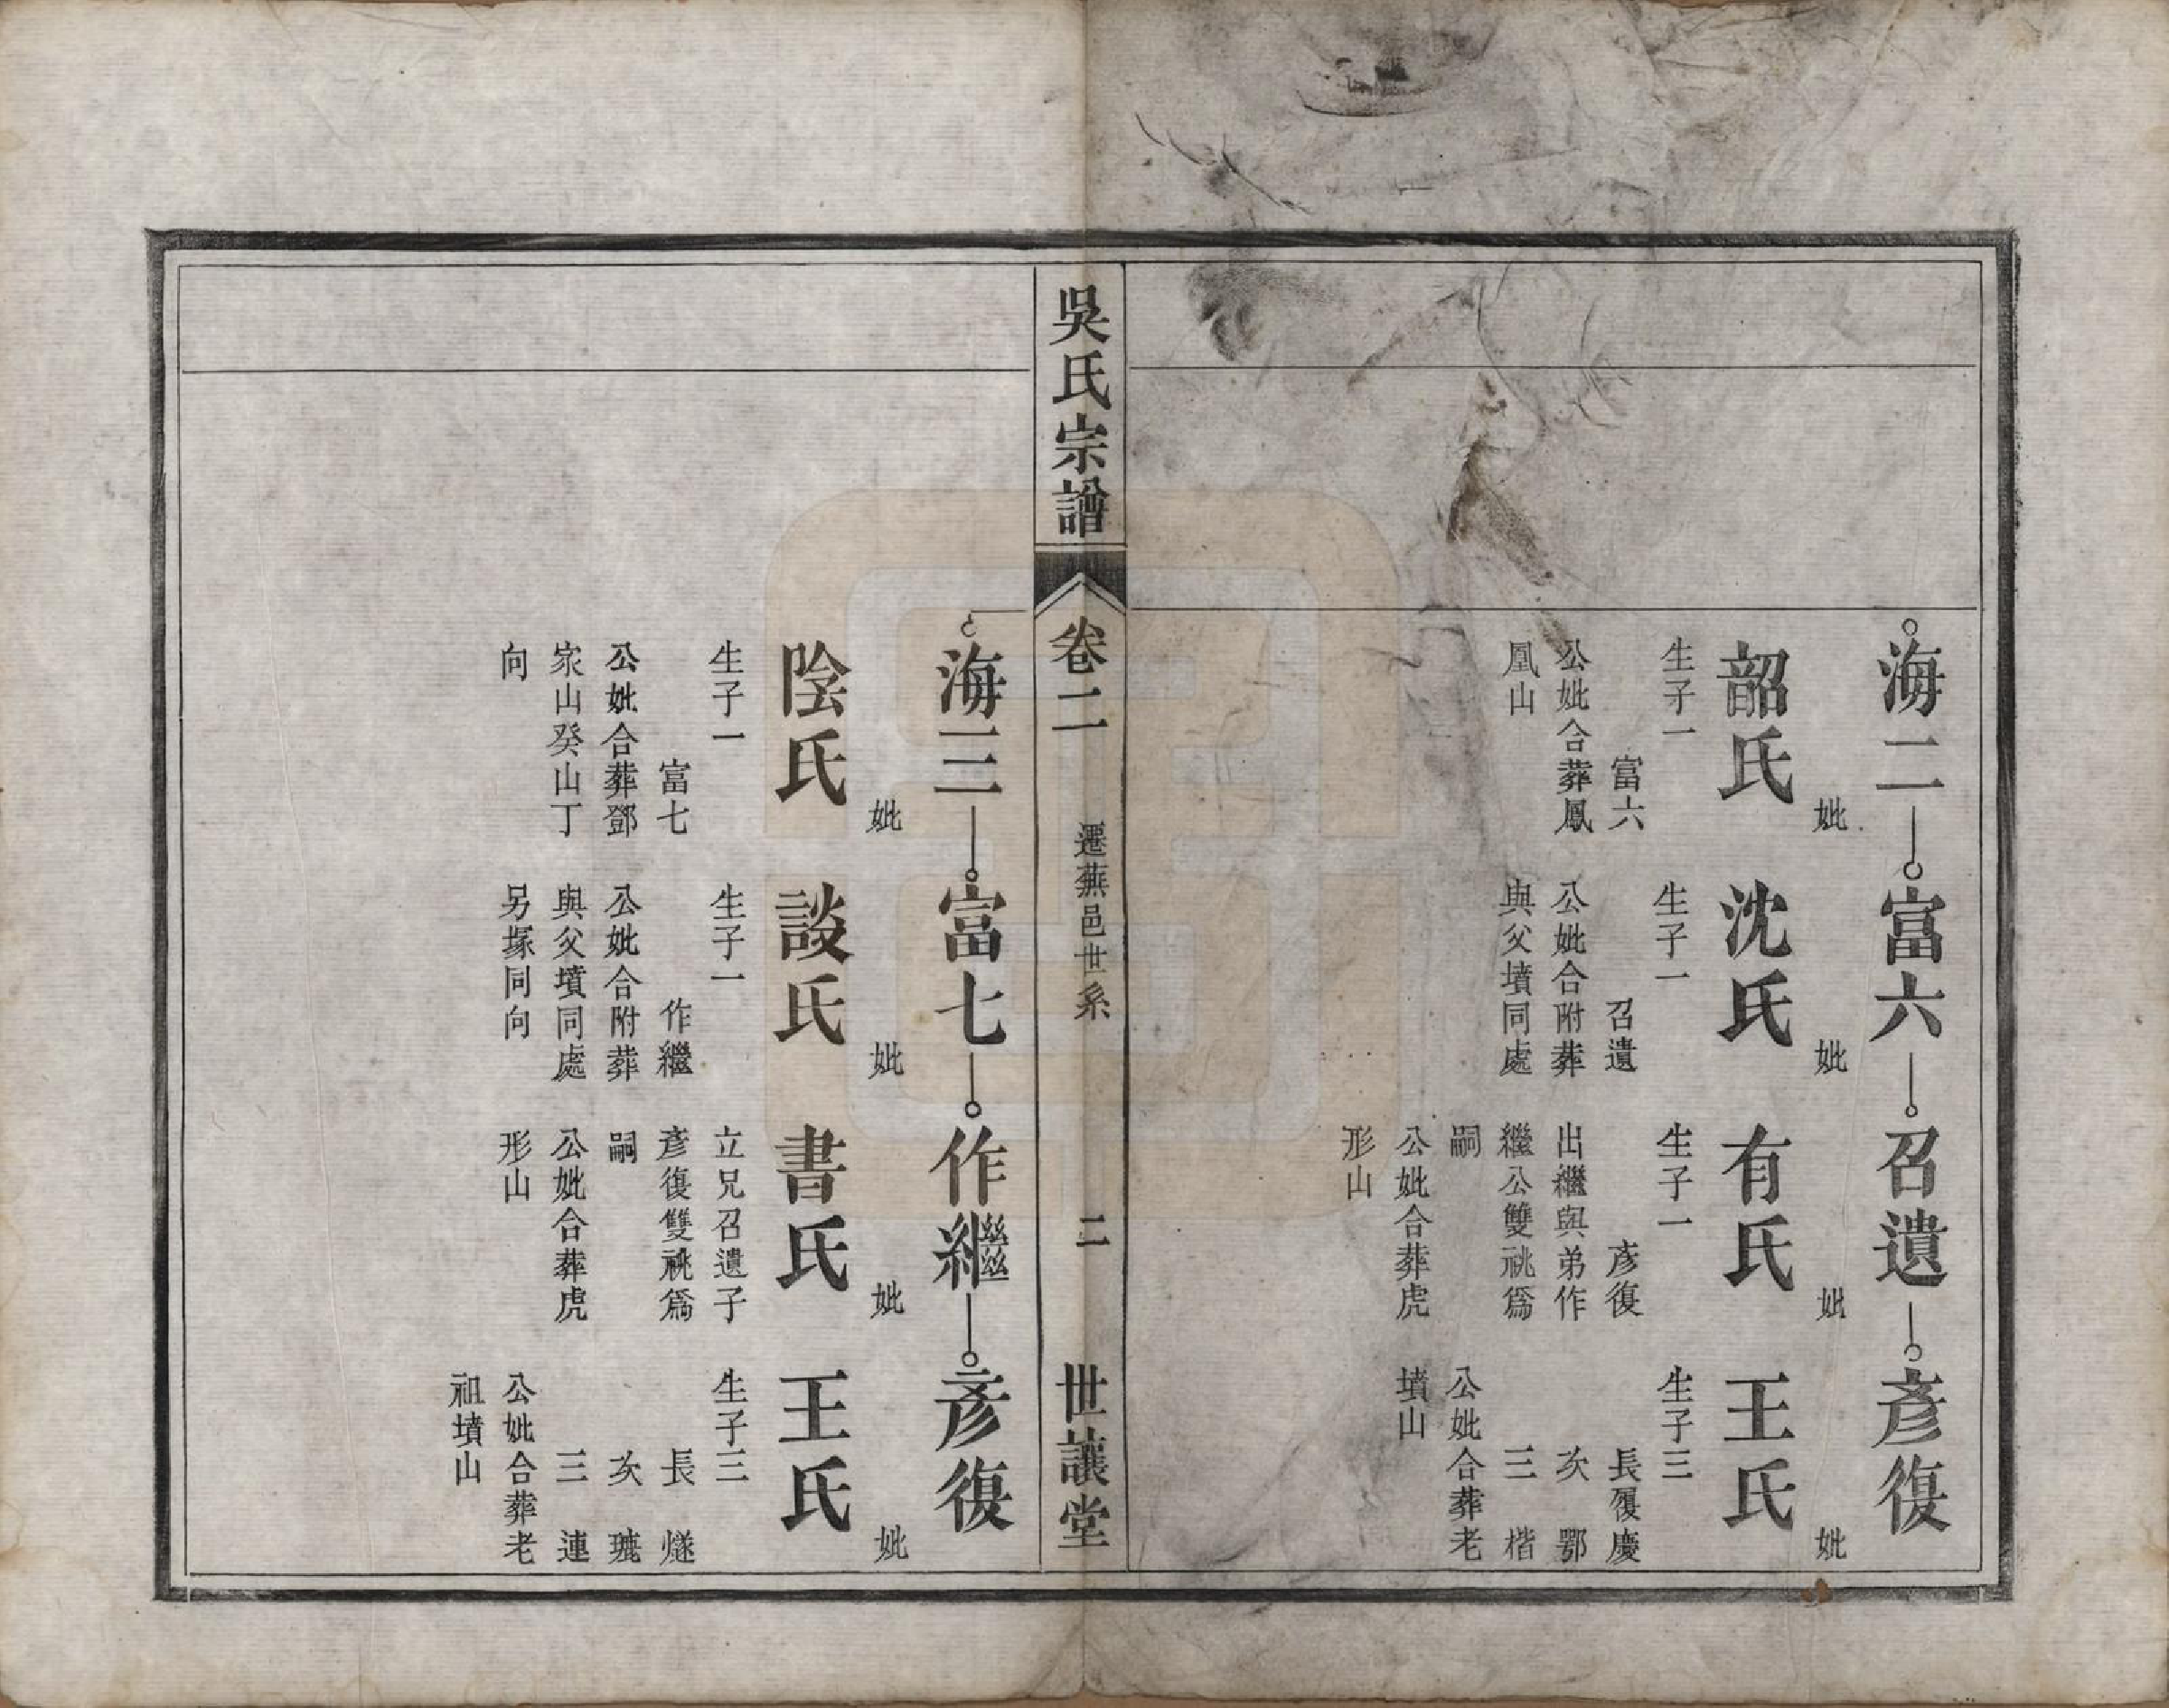 海二
妣
韶氏
生子一
富六
公妣合葬鳳
凰山
富六
妣
沈氏
生子一
召遺
公妣合附葬
與父墳同處
召遺
妣
有氏
生子一
彥復
出繼與弟作
繼公雙祧爲
嗣
公妣合葬虎
形山
彥復
妣
王氏
生子三
長履慶
次鄂
三楷
公妣合葬老
墳山
吳氏宗譜
卷二
遷蕪邑世系
二
世讓堂
海三
妣
陰氏
生子一
富七
公妣合葬鄧
家山癸山丁
向
富七
妣
談氏
生子一
作繼
公妣合附葬
與父墳同處
另塚同向
作繼
妣
書氏
立兄召遺子
彥復雙祧爲
嗣
公妣合葬虎
形山
彥復
妣
王氏
生子三
長燧
次
三連
公妣合葬老
祖墳山